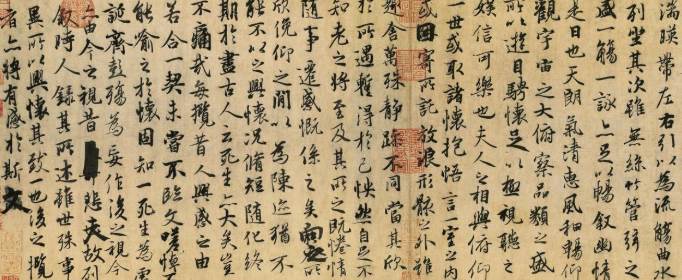 湍暎帶左右引以為流觴曲水
列坐其次雖無絲竹管弦之
盛一觴一詠亦足以暢敘幽情
是日也天朗氣清惠風和暢仰
觀宇宙之大俯察品類之盛
所以遊目騁懷足以極視聽之
娛信可樂也夫人之相與俯仰
一世或取諸懷抱悟言一室之內
或因寄所託放浪形骸之外雖
趣舍萬殊靜躁不同當其欣
於所遇暫得於己怏然自足不
知老之將至及其所之既惓情
隨事遷感慨係之矣向之所
欣俛仰之間以為陳迹猶不
能不以之興懷況脩短隨化終
期於盡古人云死生亦大矣豈
不痛哉每攬昔人興感之由
若合一契未嘗不臨文嗟悼不
能喻之於懷固知一死生為虛
誕齊彭殤為妄作後之視今
亦由今之視昔悲夫故列
敘時人錄其所述雖世殊事
異所以興懷其致一也後之攬
者亦將有感於斯文